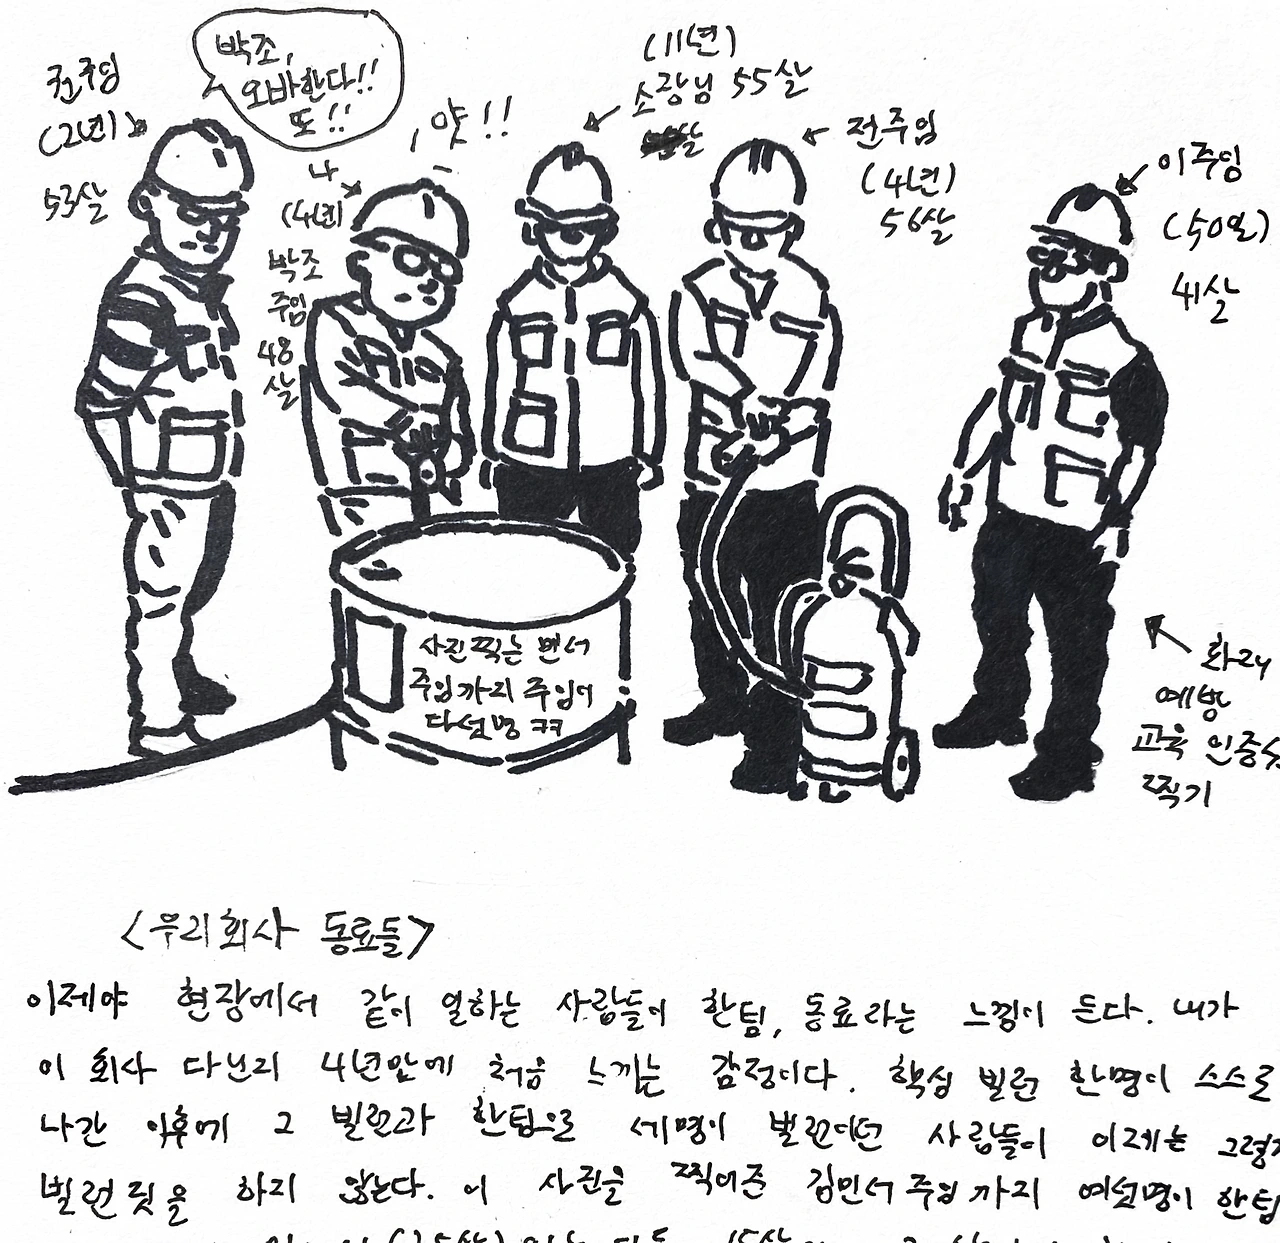 권주임
(2년)
53살
박조,
오바한다!!
또!!
, 얏!!
나
(4년)
박조
주임
48
살
(11년)
소장님 55살
살
전주임
(4년)
56살
이주임
(50일)
41살
사진찍는 민서
주임까지 주임이
다섯명 ㅋㅋ
화재
예방
교육 인증샷
찍기
<우리회사 동료들>
이제야 현장에서 같이 일하는 사람들이 한팀, 동료라는 느낌이 든다. 내가
이 회사 다닌지 4년만에 처음 느끼는 감정이다. 핵심 빌런 한명이 스스로
나간 이후에 그 빌런과 한팀으로 세명이 빌런이던 사람들이 이제는
빌런짓을 하지 않는다. 이 사진을 찍어준 김민서주임까지 여섯명이 한팀